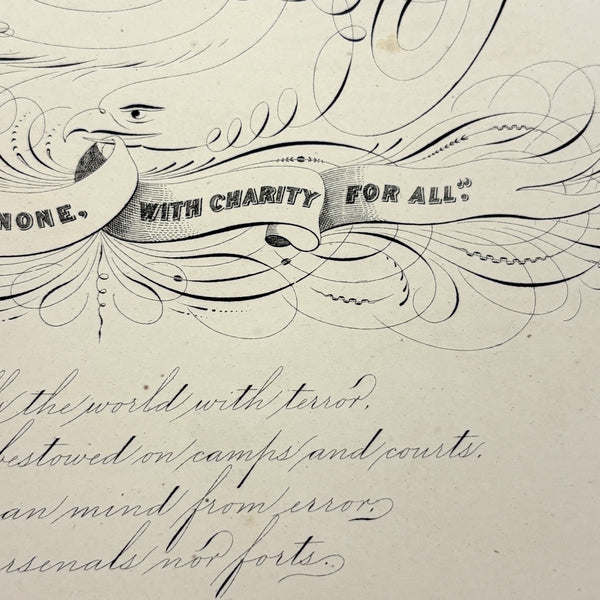 NONE, WITH CHARITY FOR ALL."
the world with terror,
bestowed on camps and courts.
an mind from error,
rsenals nor forts.